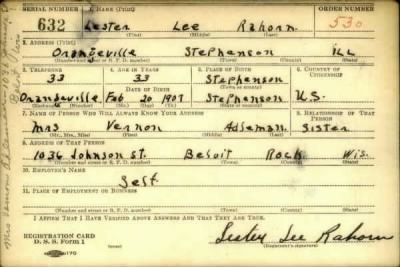 SERIAL NUMBER 1. NAME (Print) ORDER NUMBER
632 Lester Lee Rahorn. 530
(First) (Middle) (Last)
2. ADDRESS (Print)
Orangeville Stephenson ILL
(Number and street or R. F. D. number) (Town) (County) (State)
3. TELEPHONE 4. AGE IN YEARS 5. PLACE OF BIRTH 6. COUNTRY OF CITIZENSHIP
33 33 Stephenson
DATE OF BIRTH (Town or county)
Orangeville Feb 20 1907 Stephenson U.S.
(Exchange) (Number) (Mo.) (Day) (Yr.) (State or country)
7. NAME OF PERSON WHO WILL ALWAYS KNOW YOUR ADDRESS 8. RELATIONSHIP OF THAT PERSON
Mrs Vernon Adleman. Sister
(Mr., Mrs., Miss) (First) (Middle) (Last)
9. ADDRESS OF THAT PERSON
1036 Johnson St. Beloit Rock Wis.
(Number and street or R. F. D. number) (Town) (County) (State)
10. EMPLOYER'S NAME
Self
11. PLACE OF EMPLOYMENT OR BUSINESS
(Number and street or R. F. D. number) (Town) (County) (State)
I AFFIRM THAT I HAVE VERIFIED ABOVE ANSWERS AND THAT THEY ARE TRUE.
REGISTRATION CARD
D. S. S. Form 1
Lester Lee Rahorn
(Registrant's signature)
Mrs Vernon 1036